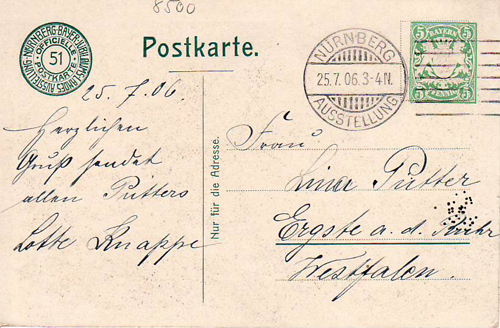 8500
NÜRNBERG·BAYER·JUBIL·LANDES·AUSSTELLUNG
OFFICIELLE
51
POSTKARTE
Postkarte.
NÜRNBERG
25.7.06.3-4N.
AUSSTELLUNG
BAYERN
5 5
5 PFENNIG 5
25.7.06.
Herzlichen
Gruß sendet
allen Pütters
Lotte Knappe
Nur für die Adresse.
Frau
Pütter
Ergste a. d. Ruhr
Westfalen.